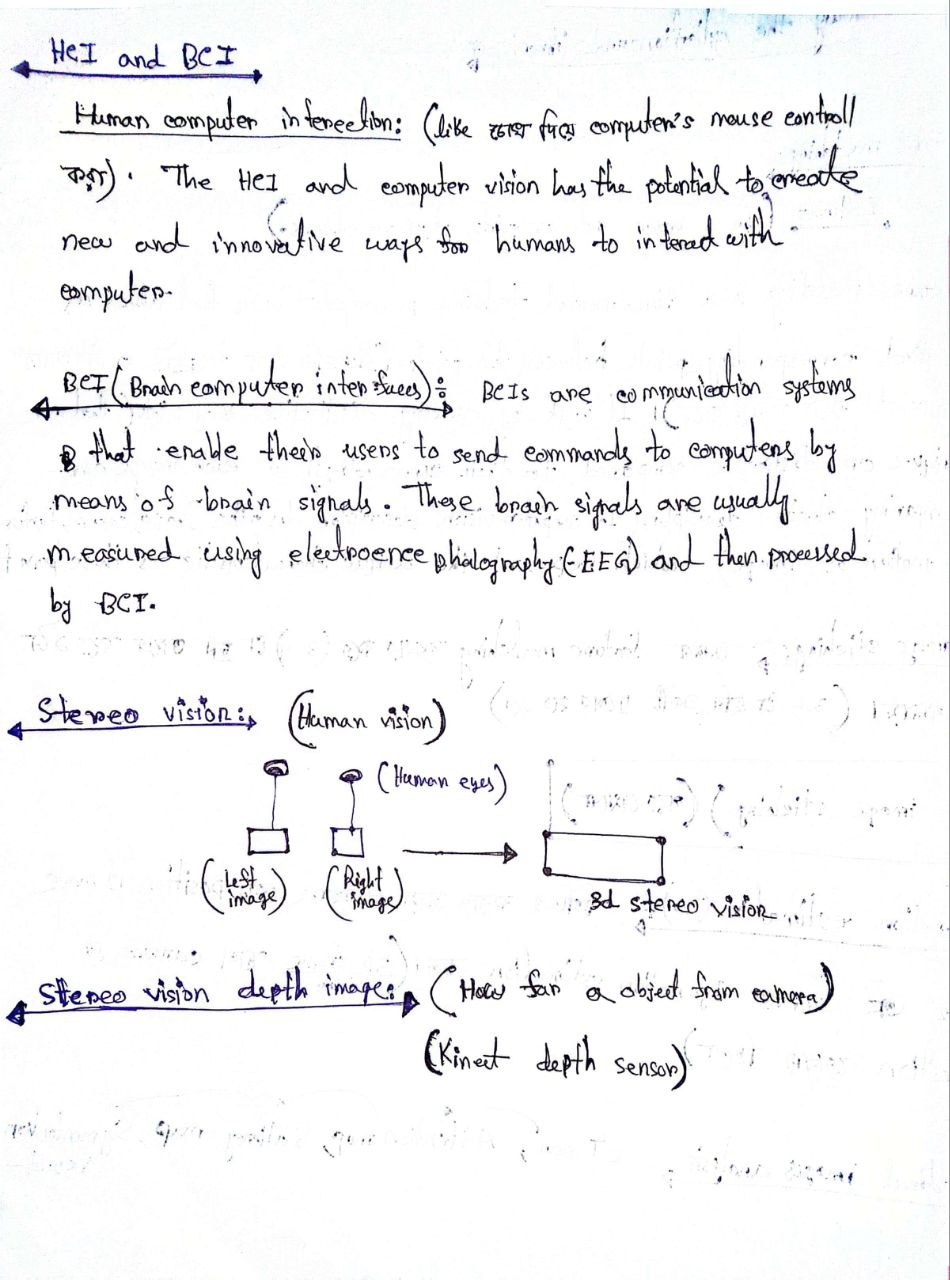 HCI and BCI
Human computer interection: (like চোখ দিয়ে computer's mouse controll
করা). The HCI and computer vision has the potential to create
new and innovative ways for humans to interact with
computer.
BCI (Brain computer interfaces): BCIs are communication systems
that enable their users to send commands to computers by
means of brain signals. These brain signals are usually
measured using electroencephalography (EEG) and then processed
by BCI.
Stereo vision: (Human vision)
(Human eyes)
(Left image) (Right image)
3d stereo vision
Stereo vision depth image: (How far a object from camera)
(Kinect depth sensor)